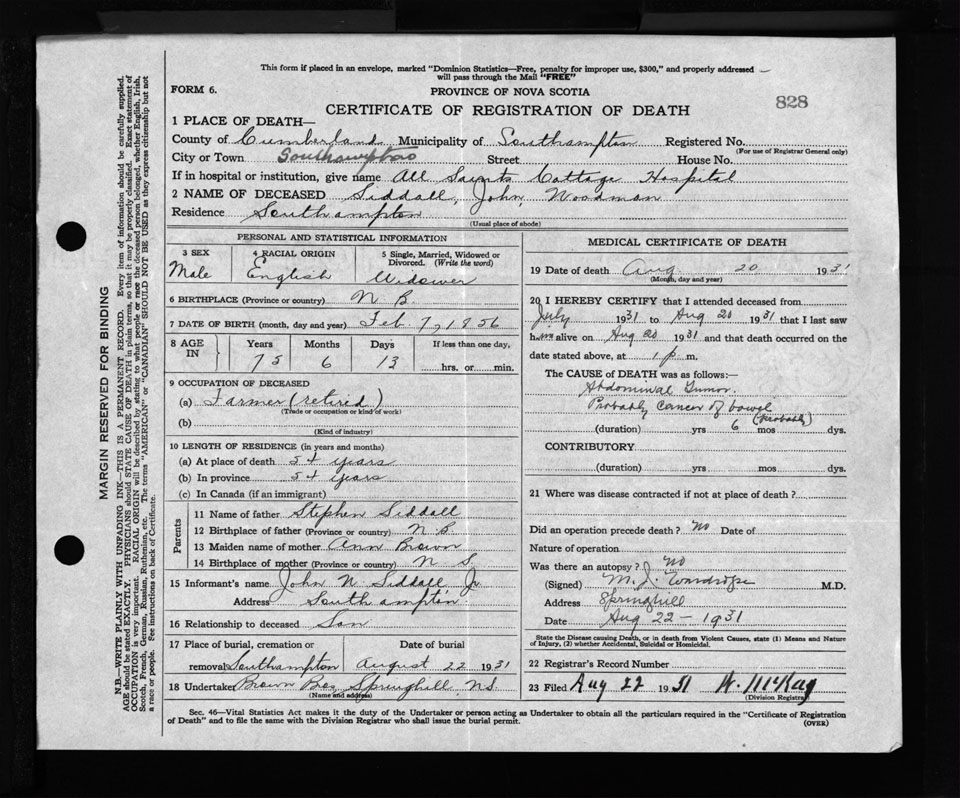 This form if placed in an envelope, marked "Dominion Statistics—Free, penalty for improper use, $300," and properly addressed —
will pass through the Mail "FREE"
FORM 6.
PROVINCE OF NOVA SCOTIA
CERTIFICATE OF REGISTRATION OF DEATH
828
1 PLACE OF DEATH—
County of Cumberland Municipality of Southampton Registered No.
(For use of Registrar General only)
City or Town Street House No.
If in hospital or institution, give name All Saints Cottage Hospital
2 NAME OF DECEASED Siddall, John, Woodman
Residence Southampton
(Usual place of abode)
PERSONAL AND STATISTICAL INFORMATION
3 SEX
Male
4 RACIAL ORIGIN
English
5 Single, Married, Widowed or Divorced. (Write the word)
Widower
6 BIRTHPLACE (Province or country) N B
7 DATE OF BIRTH (month, day and year) Feb 7, 1856
8 AGE IN
Years Months Days If less than one day,
75 6 13 hrs. or min.
9 OCCUPATION OF DECEASED
(a) Farmer (retired)
(Trade or occupation or kind of work)
(b)
(Kind of industry)
10 LENGTH OF RESIDENCE (in years and months)
(a) At place of death 54 years
(b) In province 54 years
(c) In Canada (if an immigrant)
Parents
11 Name of father Stephen Siddall
12 Birthplace of father (Province or country) N. B.
13 Maiden name of mother Ann Brown
14 Birthplace of mother (Province or country) N S
15 Informant's name John N Siddall Jr
Address Southampton
16 Relationship to deceased Son
17 Place of burial, cremation or Date of burial
removal Southampton August 22 1931
18 Undertaker Brown Bros Springhill, N.S.
(Name and address)
MEDICAL CERTIFICATE OF DEATH
19 Date of death Aug 20 1931
(Month, day and year)
20 I HEREBY CERTIFY that I attended deceased from
July 1931 to Aug 20 1931 that I last saw
him alive on Aug 20 1931 and that death occurred on the
date stated above, at 1 p m.
The CAUSE OF DEATH was as follows:—
Abdominal Tumor.
Probably Cancer of bowel
(probably)
(duration) yrs 6 mos dys.
CONTRIBUTORY
(duration) yrs. mos. dys.
21 Where was disease contracted if not at place of death?
Did an operation precede death? No Date of
Nature of operation
Was there an autopsy? No
(Signed) M. J. Wardrope M.D.
Address Springhill
Date Aug 22 – 1931
State the Disease causing Death, or in death from Violent Causes, state (1) Means and Nature
of Injury, (2) whether Accidental, Suicidal or Homicidal.
22 Registrar's Record Number
23 Filed Aug 22 1931 W. McKay
(Division Registrar)
Sec. 46—Vital Statistics Act makes it the duty of the Undertaker or person acting as Undertaker to obtain all the particulars required in the "Certificate of Registration
of Death" and to file the same with the Division Registrar who shall issue the burial permit.
(OVER)
MARGIN RESERVED FOR BINDING
N.B.—WRITE PLAINLY WITH UNFADING INK—THIS IS A PERMANENT RECORD. Every item of information should be carefully supplied.
AGE should be stated EXACTLY. PHYSICIANS should STATE CAUSE OF DEATH in plain terms, so that it may be properly classified. Exact statement of
OCCUPATION is very important. RACIAL ORIGIN will be described by stating to what people or race the deceased person belonged, whether English, Irish,
Scotch, French, German, Russian, Ruthenian, etc. The terms "AMERICAN" or "CANADIAN" SHOULD NOT BE USED as they express citizenship but not
a race or people. See instructions on back of Certificate.